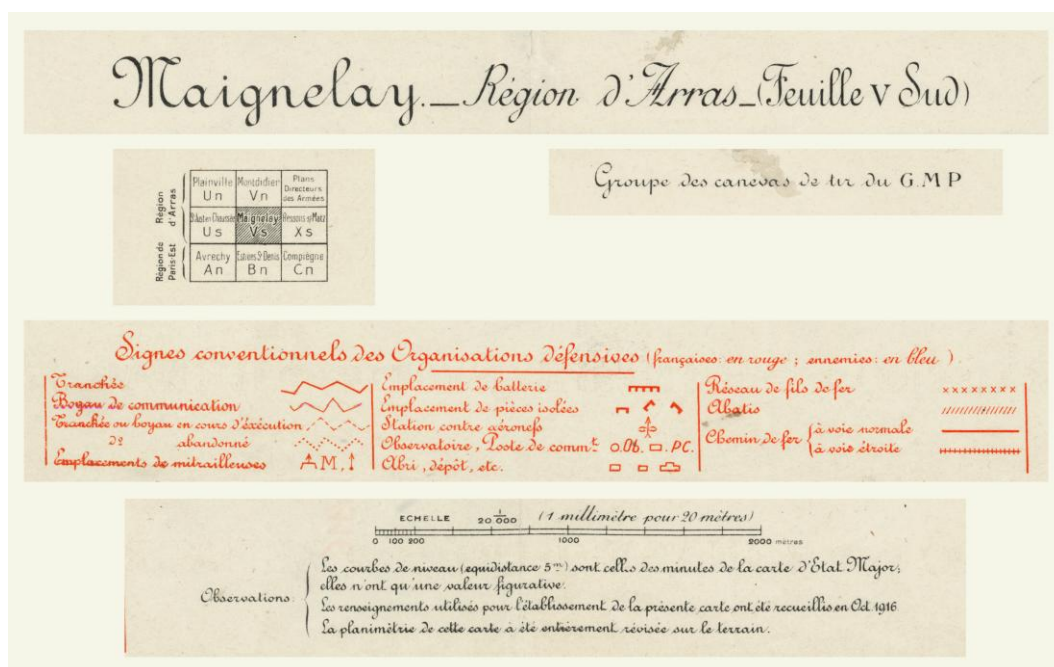 Maignelay._Région d'Arras_(Feuille V Sud)
Groupe des canevas de tir du G.M.P
Région d'Arras
Région de Paris-Est
Plainville Un
Montdidier Vn
Plans Directeurs des Armées
Us
Maignelay Vs
Xs
Avrechy An
Estrées St Denis Bn
Compiègne Cn
Signes conventionnels des Organisations défensives (françaises: en rouge ; ennemies: en bleu ).
Tranchée
Boyau de communication
Tranchée ou boyau en cours d'éxécution
do abandonné
Emplacements de mitrailleuses M.
Emplacement de batterie
Emplacement de pièces isolées
Station contre aéronefs
Observatoire, Poste de commt. Ob. PC.
Abri, dépôt, etc.
Réseau de fils de fer
Abatis
Chemin de fer à voie normale
à voie étroite
ECHELLE 1/20.000 (1 millimètre pour 20 mètres)
0 100 200 1000 2000 mètres
Observations:
Les courbes de niveau (equidistance 5m) sont celles des minutes de la carte d'Etat Major;
elles n'ont qu'une valeur figurative.
Les renseignements utilisés pour l'établissement de la présente carte ont été recueillis en Oct 1916
La planimétrie de cette carte a été entièrement révisée sur le terrain.